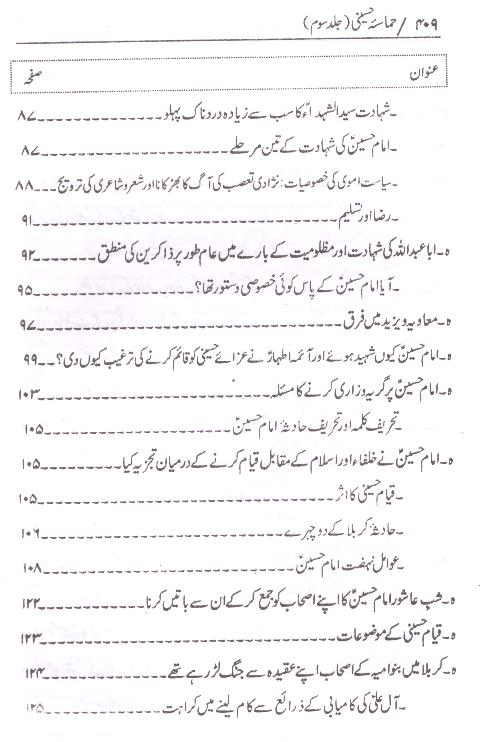 ۴۰۹ / حماسۂ حسینی (جلد سوم)
عنوان صفحہ
۔شہادت سید الشہداءؑ کا سب سے زیادہ دردناک پہلو۔۔۔۔۔۔۔۔۔۔۔۔۔۔۸۷
۔امام حسینؑ کی شہادت کے تین مرحلے۔۔۔۔۔۔۔۔۔۔۔۔۔۔۔۔۔۔۔۔۔۸۷
۔سیاست اموی کی خصوصیات: نژادی تعصب کی آگ کا بھڑکانا اور شعر و شاعری کی ترویج۔۔۔۸۸
۔رضا اور تسلیم۔۔۔۔۔۔۔۔۔۔۔۔۔۔۔۔۔۔۔۔۔۔۔۔۔۔۔۔۔۔۔۔۹۱
ہ۔ابا عبداللہ کی شہادت اور مظلومیت کے بارے میں عام طور پر ذاکرین کی منطق۔۔۔۔۔۔۔۹۲
۔آیا امام حسینؑ کے پاس کوئی خصوصی دستور تھا؟۔۔۔۔۔۔۔۔۔۔۔۔۔۔۔۔۹۵
ہ۔معاویہ و یزید میں فرق۔۔۔۔۔۔۔۔۔۔۔۔۔۔۔۔۔۔۔۔۔۔۔۔۔۔۔۹۷
ہ۔امام حسینؑ کیوں شہید ہوئے اور آئمہ اطہارؑ نے عزائے حسینی کو قائم کرنے کی ترغیب کیوں دی؟۔۔۹۹
ہ۔امام حسینؑ پر گریہ وزاری کرنے کا مسئلہ۔۔۔۔۔۔۔۔۔۔۔۔۔۔۔۔۔۔۔۔۱۰۳
۔تحریف کلمہ اور تحریف حادثۂ امام حسینؑ۔۔۔۔۔۔۔۔۔۔۔۔۔۔۔۔۔۔۔۔۱۰۵
ہ۔امام حسینؑ نے خلفاء اور اسلام کے مقابل قیام کرنے کے درمیان تجزیہ کیا۔۔۔۔۔۔۔۔۱۰۵
۔قیام حسینی کا اثر۔۔۔۔۔۔۔۔۔۔۔۔۔۔۔۔۔۔۔۔۔۔۔۔۔۔۔۔۔۱۰۵
۔حادثۂ کربلا کے دو چہرے۔۔۔۔۔۔۔۔۔۔۔۔۔۔۔۔۔۔۔۔۔۔۔۔۔۱۰۶
۔عوامل نہضت امام حسینؑ۔۔۔۔۔۔۔۔۔۔۔۔۔۔۔۔۔۔۔۔۔۔۔۔۔۱۰۸
ہ۔شب عاشور امام حسینؑ کا اپنے اصحاب کو جمع کر کے ان سے باتیں کرنا۔۔۔۔۔۔۔۔۔۱۲۲
ہ۔قیام حسینی کے موضوعات۔۔۔۔۔۔۔۔۔۔۔۔۔۔۔۔۔۔۔۔۔۔۔۔۔۱۲۳
ہ۔کربلا میں بنو امیہ کے اصحاب اپنے عقیدہ سے جنگ لڑ رہے تھے۔۔۔۔۔۔۔۔۔۔۔۱۲۴
۔آل علیؑ کی کامیابی کے ذرائع سے کام لینے میں کراہت۔۔۔۔۔۔۔۔۔۔۔۔۔۱۲۵